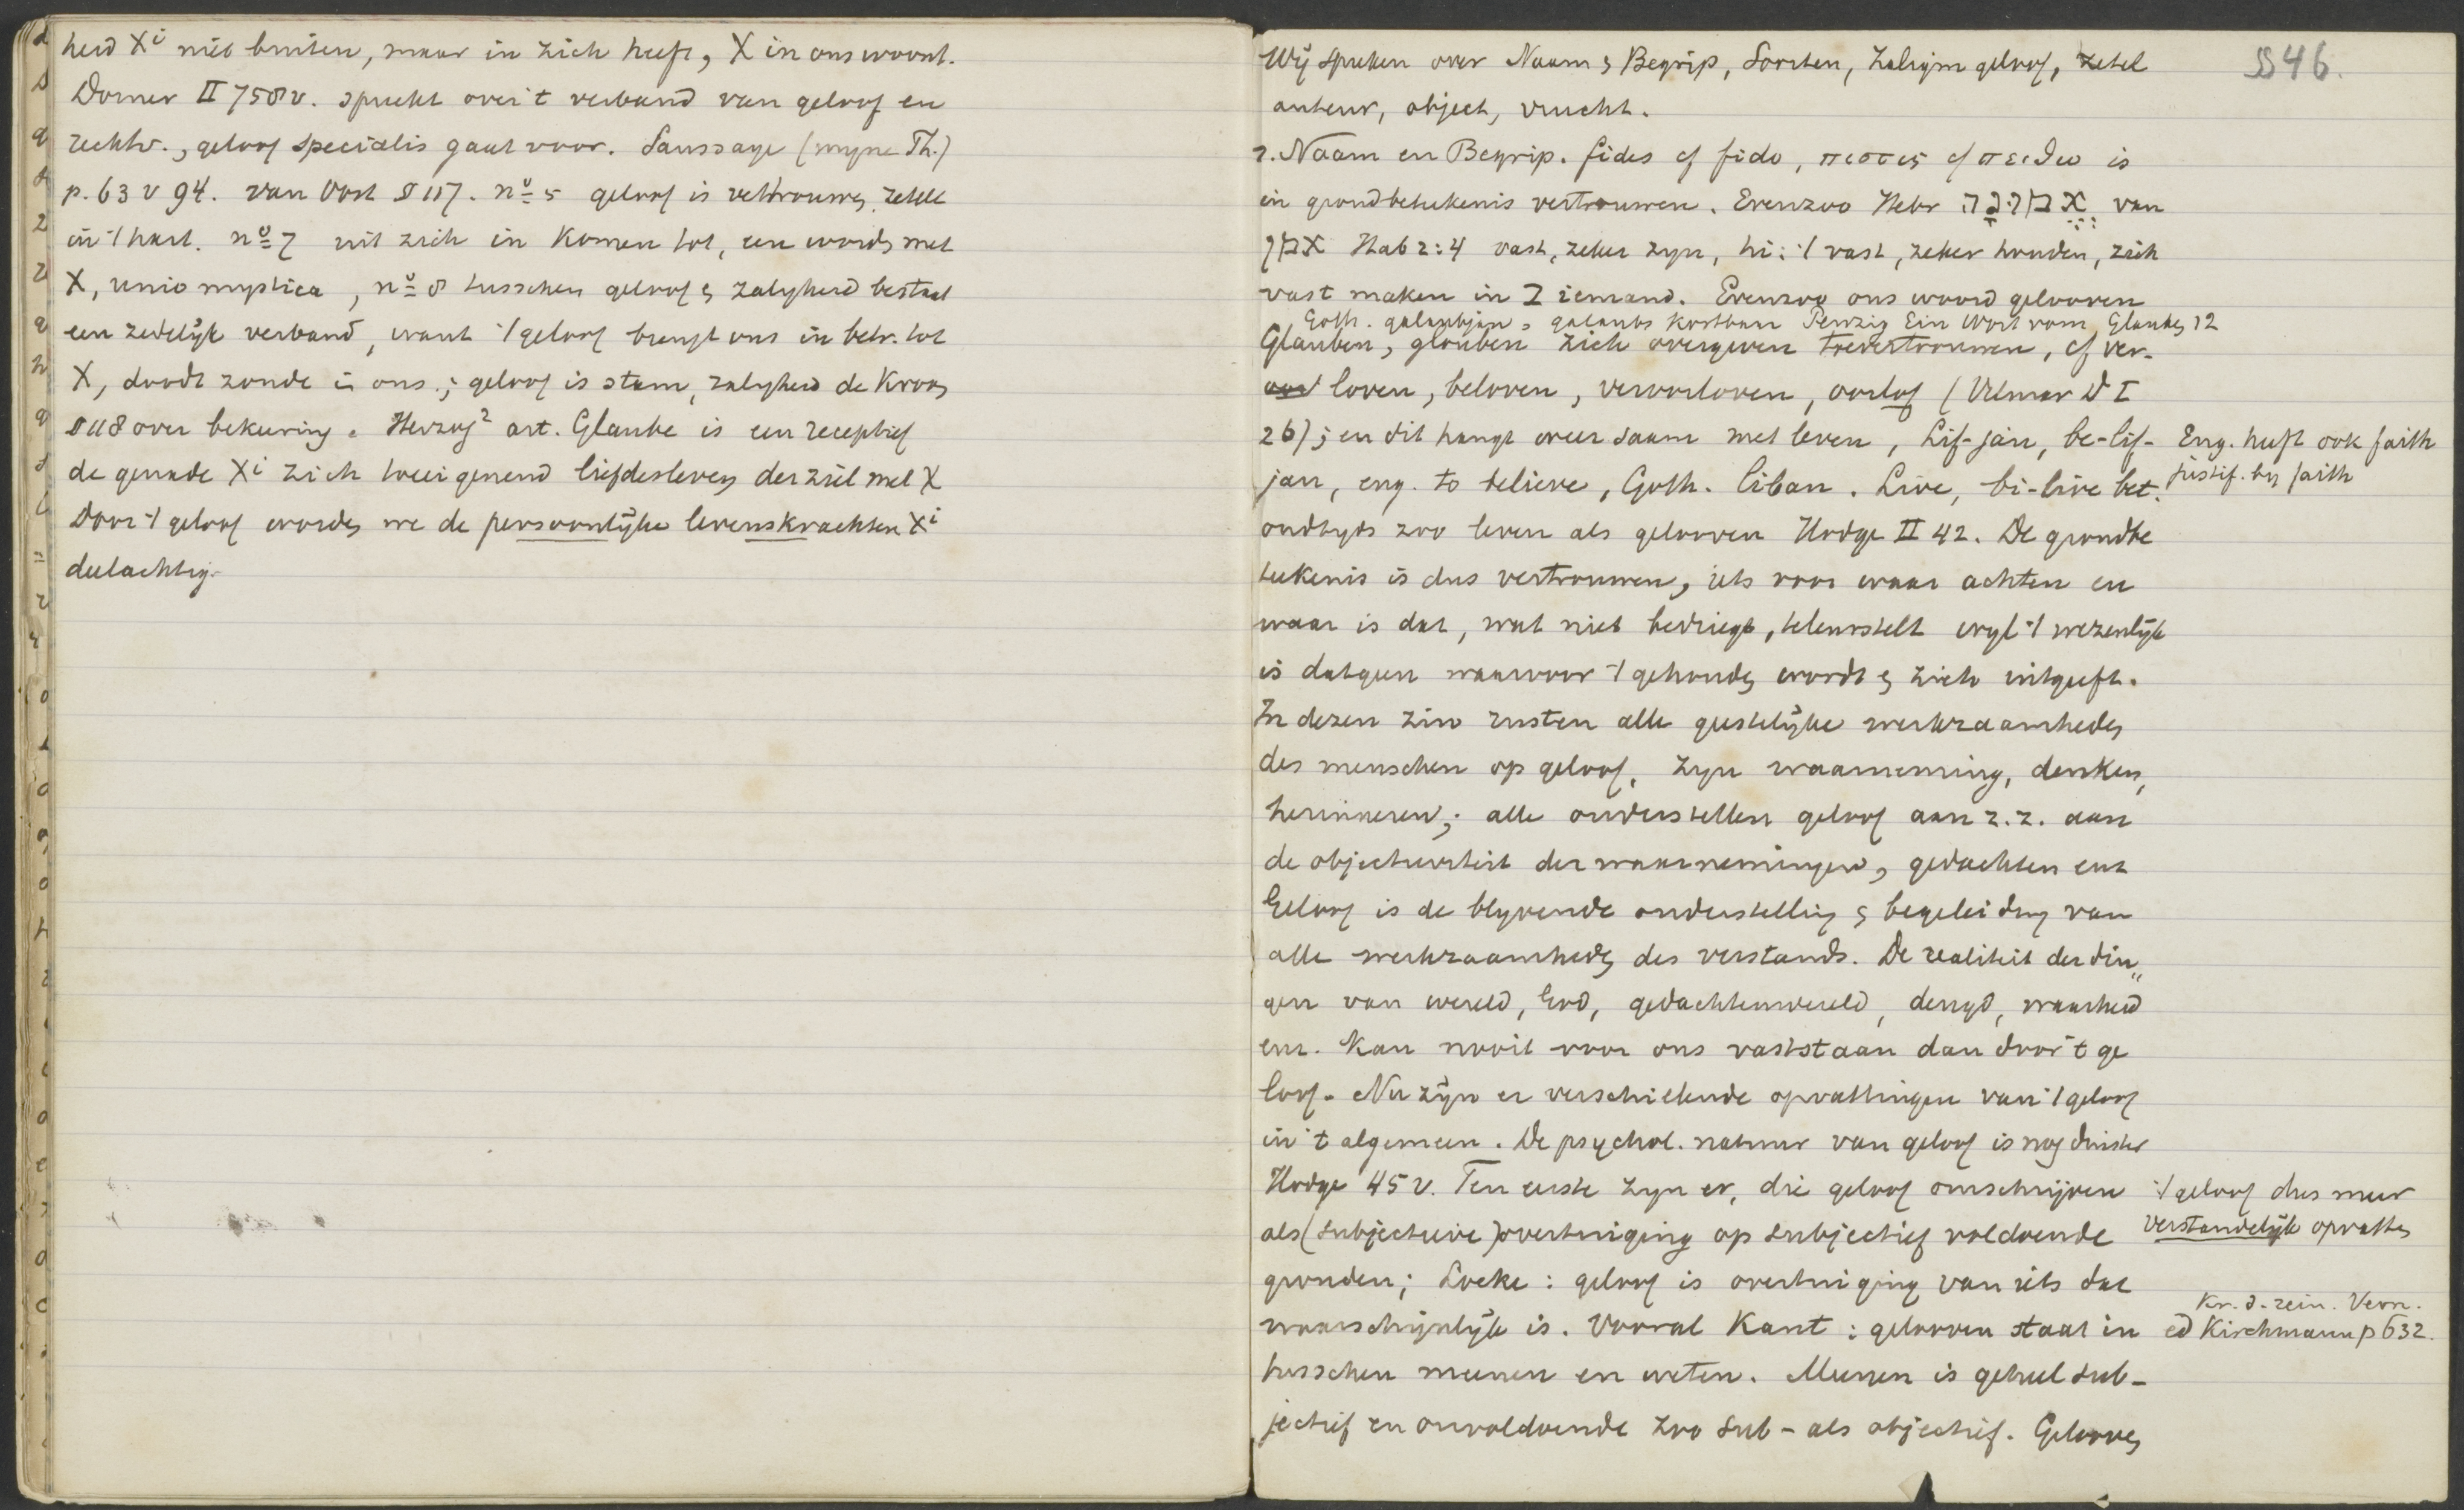 heid Xi niet buiten, maar in zich heeft, X in ons woont.
Dorner II 758v. spreekt over 't verband van geloof en
rechtv., geloof specialis gaat voor. Saussaye (myne Th.)
p. 63 v 94. van Oost § 117. no 5 geloof is vertrouwen, zetelt
in 't hart. no 7 uit zich in komen tot, een worden met
X, unio mystica, no 8 tusschen geloof en zaligheid bestaat
een zedelijk verband, want 't geloof brengt ons in betr. tot
X, doodt zonde in ons; geloof is stam, zaligheid de kroon
§ 118 over bekeering. Herzog2 art. Glaube is een receptief
de genade Xi zich toeeigenend liefdesleven der ziel met X
Door 't geloof worden we de persoonlijke levenskrachten Xi
deelachtig.
§ 46.
Wij spreken over Naam en Begrip, Soorten, Zaligm geloof, zetel
auteur, object, vrucht.
1. Naam en Begrip. fides cf fido, πιστις cf πειθω is
in grondbeteekenis vertrouwen. Evenzoo Hebr אֱמוּנָה van
אמן Hab 2:4 vast, zeker zyn, hi: 't vast, zeker houden, zich
vast maken in ב iemand. Evenzoo ons woord gelooven
Goth. galaubjan, galaubs kostbaar Penzig Ein Wort vom Glauben 12
Glauben, glouben zich overgeven toevertrouwen, cf ver-
loven, beloven, veroorloven, oorlof (Vilmar D I
26); en dit hangt weer saam met leven, Lif-jan, be-lif-
Eng. heeft ook faith
justif. by faith
jan, eng. to believe, Goth. liban. Live, bi-live bet.
oudtyds zoo leven als gelooven Hodge II 42. De grondbe
teekenis is dus vertrouwen, iets voor waar achten en
waar is dat, wat niet bedriegt, teleurstelt wyl 't wezenlijk
is datgeen waarvoor 't gehouden wordt en zich uitgeeft.
In dezen zin rusten alle geestelijke werkzaamheden
des menschen op geloof, zyn waarneming, denken,
herinneren; alle onderstellen geloof aan z.z. aan
de objectiviteit der waarnemingen, gedachten enz
Geloof is de blyvende onderstelling en begeleiding van
alle werkzaamheden des verstands. De realiteit der din„
gen van wereld, God, gedachtenwereld, deugd, waarheid
enz. kan nooit voor ons vaststaan dan door 't ge
loof. Nu zijn er verschillende opvattingen van 't geloof
in 't algemeen. De psychol. natuur van geloof is nog duister
Hodge 45 v. Ten eerste zyn er, die geloof omschrijven
't geloof dus meer
verstandelijk opvatten
als (subjectieve) overtuiging op subjectief voldoende
gronden; Locke: geloof is overtuiging van iets dat
waarschijnlijk is. Vooral Kant: gelooven staat in
Kr. d. rein. Vern.
ed Kirchmann p 632.
tusschen meenen en weten. Meenen is geheel sub-
jectief en onvoldoende zoo sub- als objectief. Gelooven